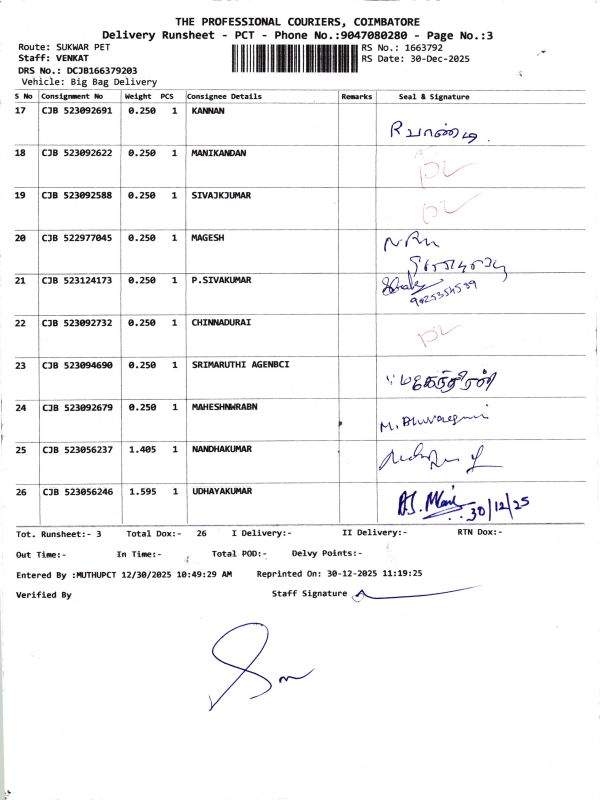 THE PROFESSIONAL COURIERS, COIMBATORE
Delivery Runsheet - PCT - Phone No.:9047080280 - Page No.:3
Route: SUKWAR PET RS No.: 1663792
Staff: VENKAT RS Date: 30-Dec-2025
DRS No.: DCJB166379203
Vehicle: Big Bag Delivery
S No Consignment No Weight PCS Consignee Details Remarks Seal & Signature
17 CJB 523092691 0.250 1 KANNAN
R பாண்டி
18 CJB 523092622 0.250 1 MANIKANDAN
DL
19 CJB 523092588 0.250 1 SIVAJKJUMAR
DL
20 CJB 522977045 0.250 1 MAGESH
21 CJB 523124173 0.250 1 P.SIVAKUMAR
22 CJB 523092732 0.250 1 CHINNADURAI
DL
23 CJB 523094690 0.250 1 SRIMARUTHI AGENBCI
மகேந்திரன்
24 CJB 523092679 0.250 1 MAHESHNWRABN
M. Bhuvaneswari
25 CJB 523056237 1.405 1 NANDHAKUMAR
26 CJB 523056246 1.595 1 UDHAYAKUMAR
A.J. Mani
30/12/25
Tot. Runsheet:- 3 Total Dox:- 26 I Delivery:- II Delivery:- RTN Dox:-
Out Time:- In Time:- Total POD:- Delvy Points:-
Entered By :MUTHUPCT 12/30/2025 10:49:29 AM Reprinted On: 30-12-2025 11:19:25
Verified By Staff Signature